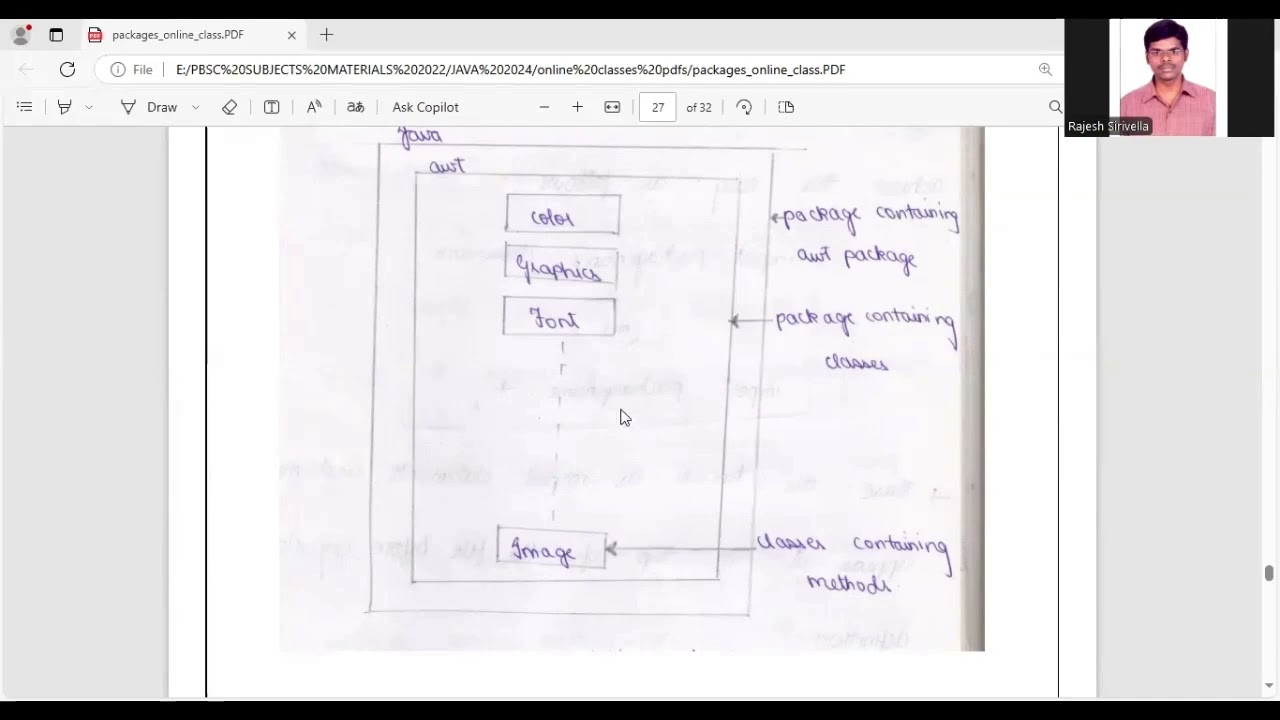 packages_online_class.PDF
File
E:/PBSC%20SUBJECTS%20MATERIALS%202022/JAVA%202024/online%20classes%20pdfs/packages_online_class.PDF
Draw
Ask Copilot
27
of 32
Rajesh Sirivella
Java
awt
Color
Graphics
Font
Image
package containing
awt package
package containing
classes
classes containing
methods.